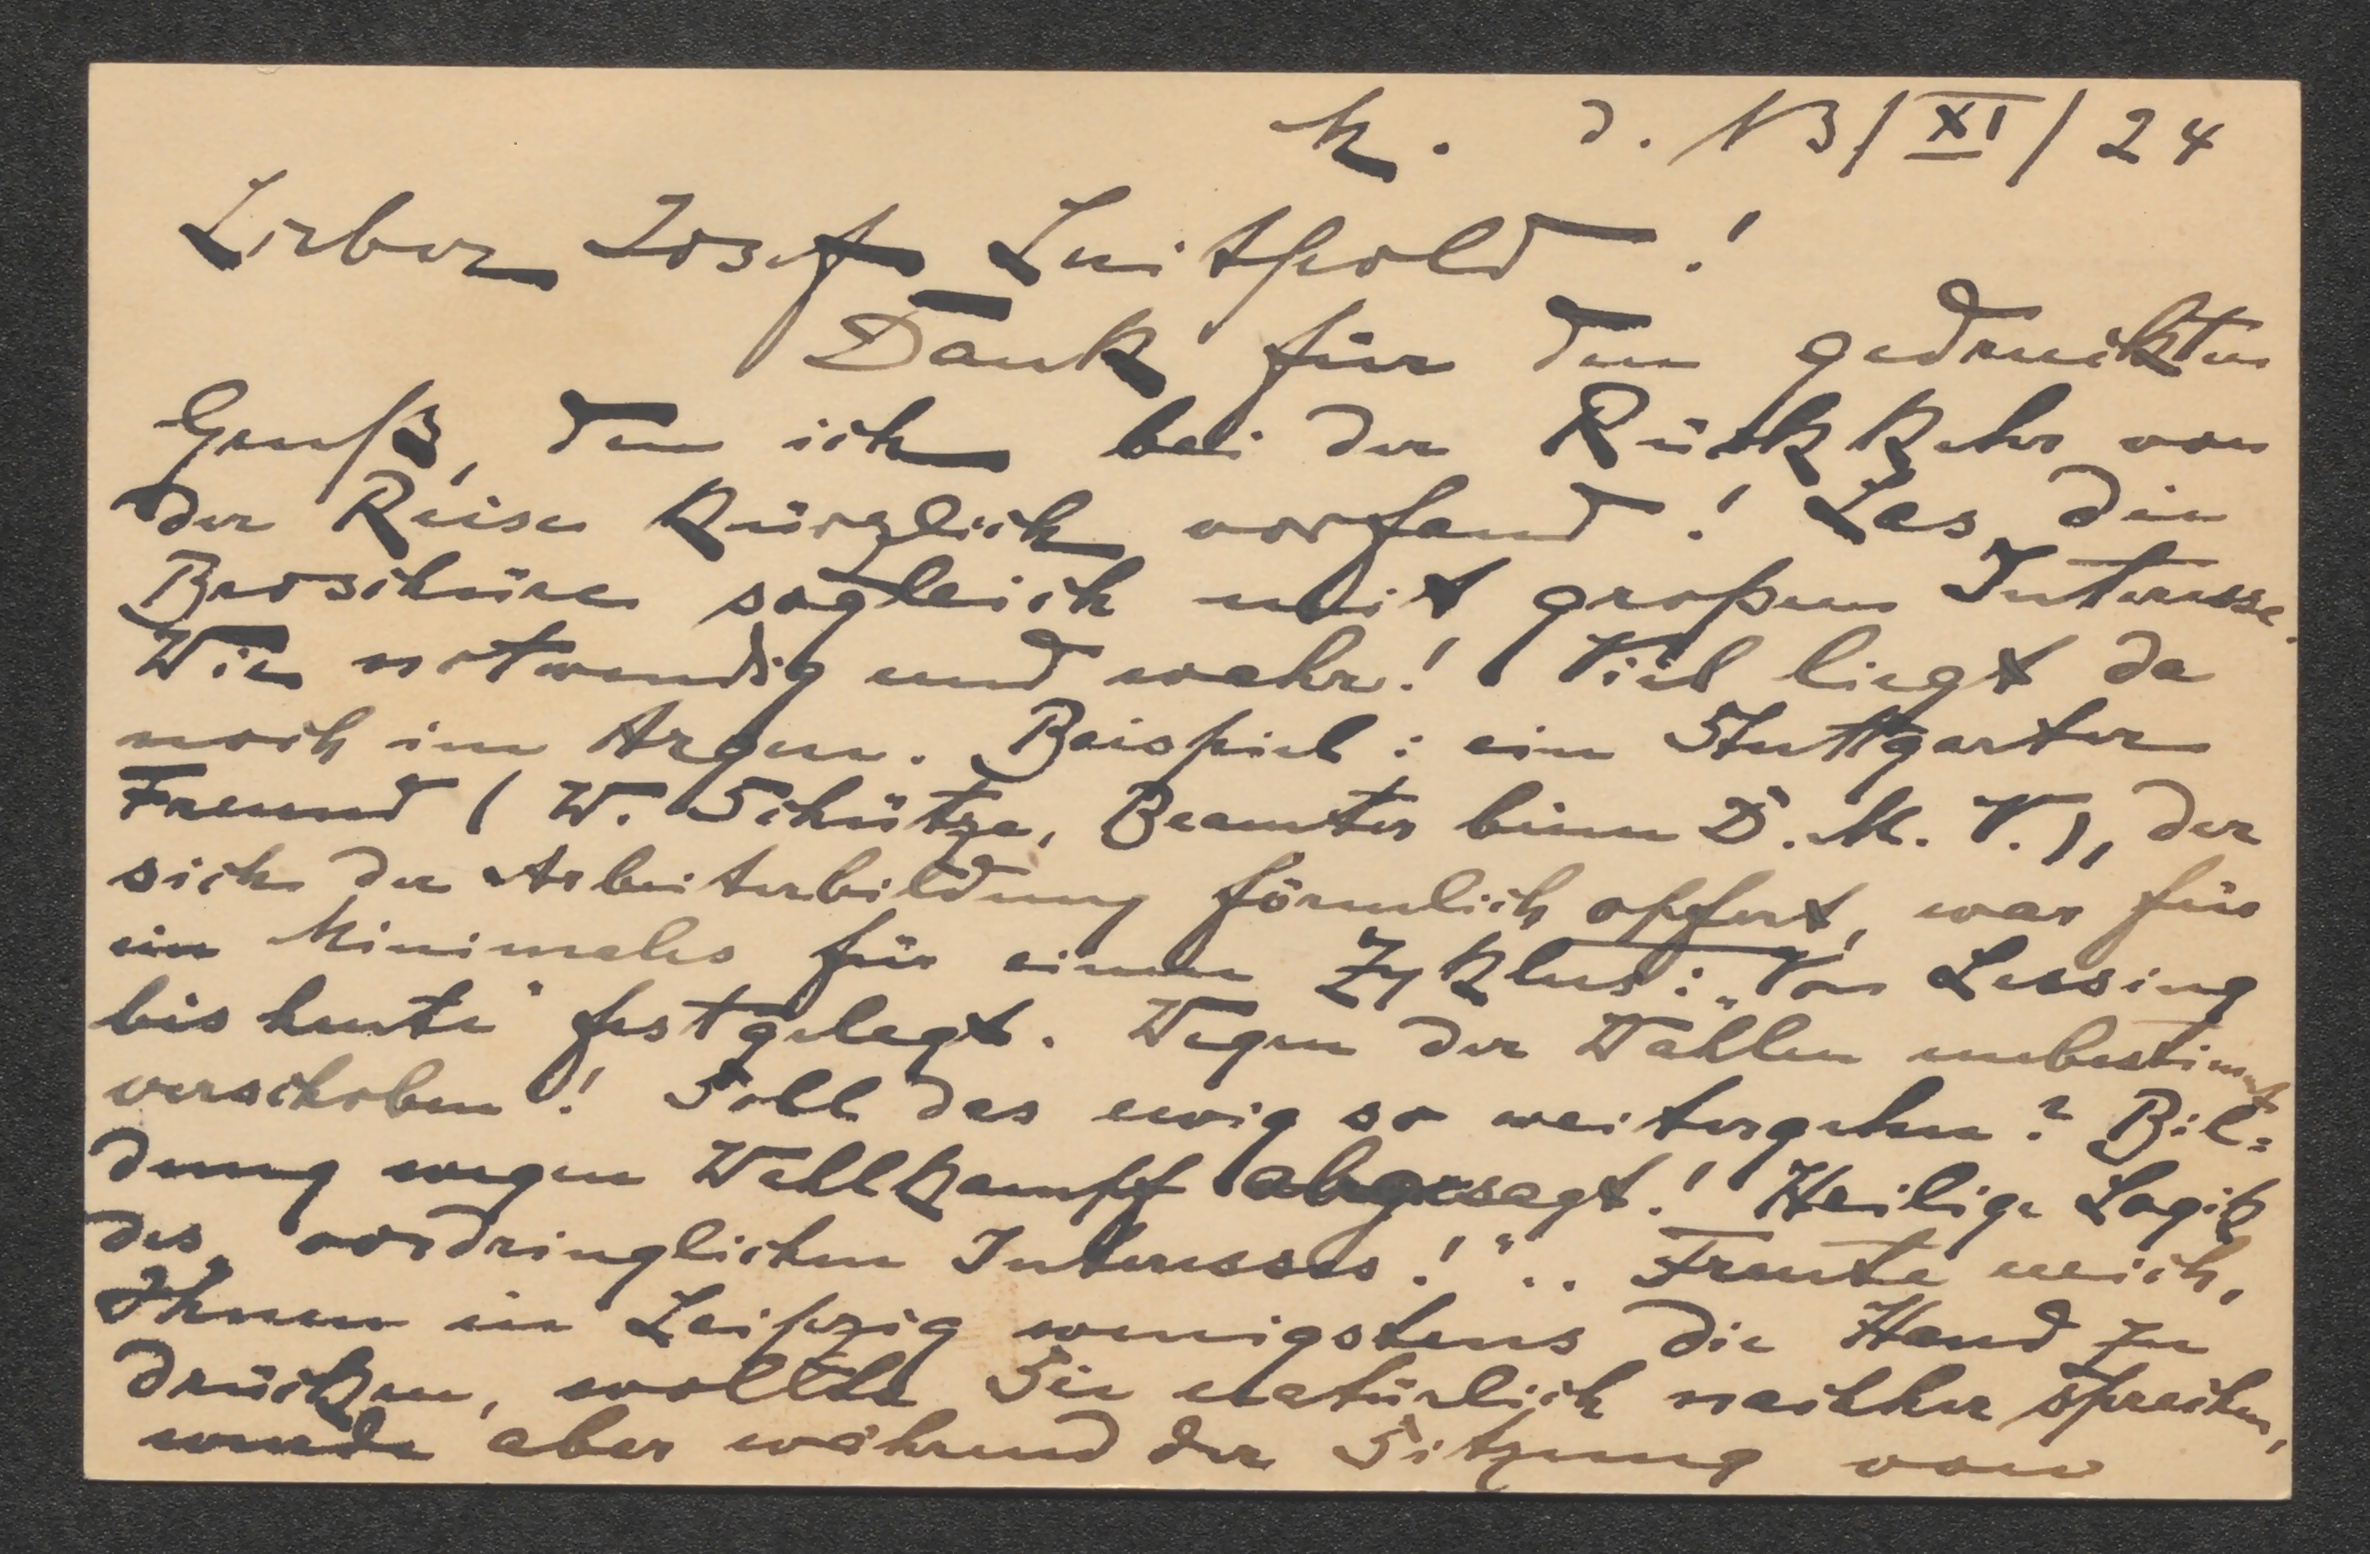 K. d. 13/XI/24
Lieber Josef Luitpold!
Dank für den gedruckten
Gruß, den ich bei der Rückkehr von
der Reise kürzlich vorfand! Las die
Broschüre sogleich mit großem Interesse.
Wie notwendig und wahr! Viel liegt da
noch im Argen. Beispiel: ein Stuttgarter
Freund (W. Schütze, Beamter beim D.M.V.), der
sich der Arbeiterbildung förmlich opfert, war für
ein Minimales für einen Zyklus: „Von Lessing
bis heute" festgelegt. Wegen der Wahlen unbestimmt
verschoben! Soll das ewig so weitergehen? Bil=
dung wegen Wahlkampf abgesagt! Heilige Logik
des „vordringlichen Interesses!" .. Freute mich,
Ihnen in Leipzig wenigstens die Hand zu
drücken, wollte Sie natürlich nachher sprechen,
wurde aber während der Sitzung vom